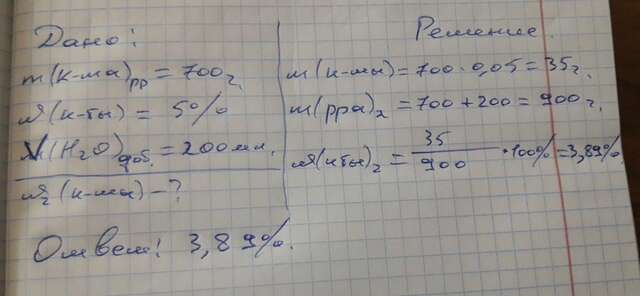 Дано:
m(к-ты)рр = 700г.
ω(к-ты) = 5%
V(H₂O)доб. = 200мл.
ω₂(к-ты) – ?
Решение.
m(к-ты) = 700 · 0,05 = 35г.
m(рра)₂ = 700 + 200 = 900г.
ω(кты)₂ = 35/900 · 100% = 3,89%
Ответ: 3,89%.